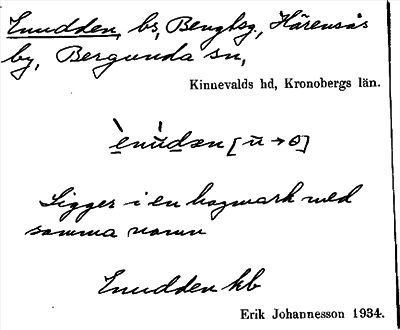 Enudden, bs, Bengtsg., Härensås
by, Bergunda sn,
Kinnevalds hd, Kronobergs län.
ènúdən [ū → o]
Ligger i en hagmark med
samma namn
Enudden kb
Erik Johannesson 1934.